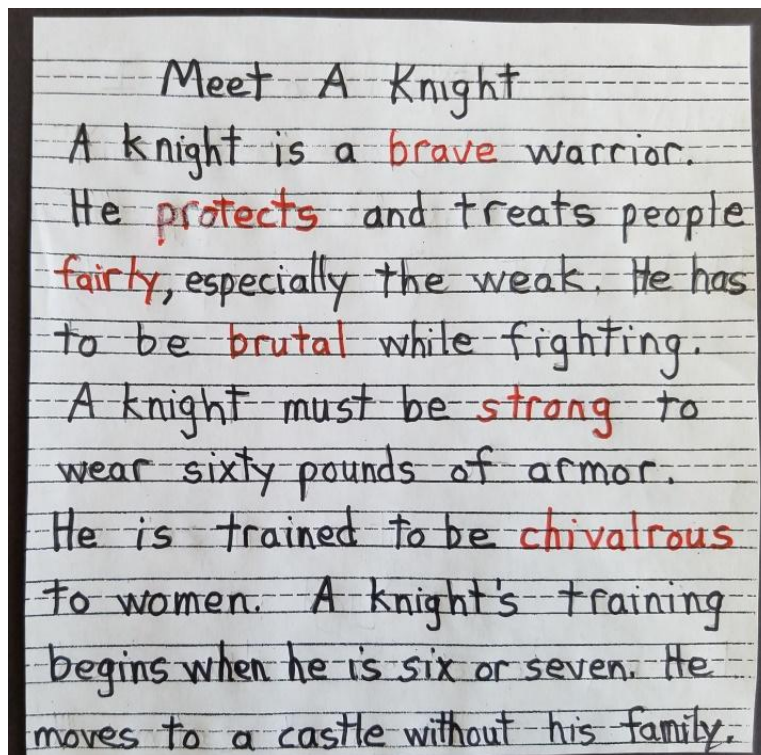 Meet A Knight
A knight is a brave warrior.
He protects and treats people
fairly, especially the weak. He has
to be brutal while fighting.
A knight must be strong to
wear sixty pounds of armor.
He is trained to be chivalrous
to women. A knight's training
begins when he is six or seven. He
moves to a castle without his family.